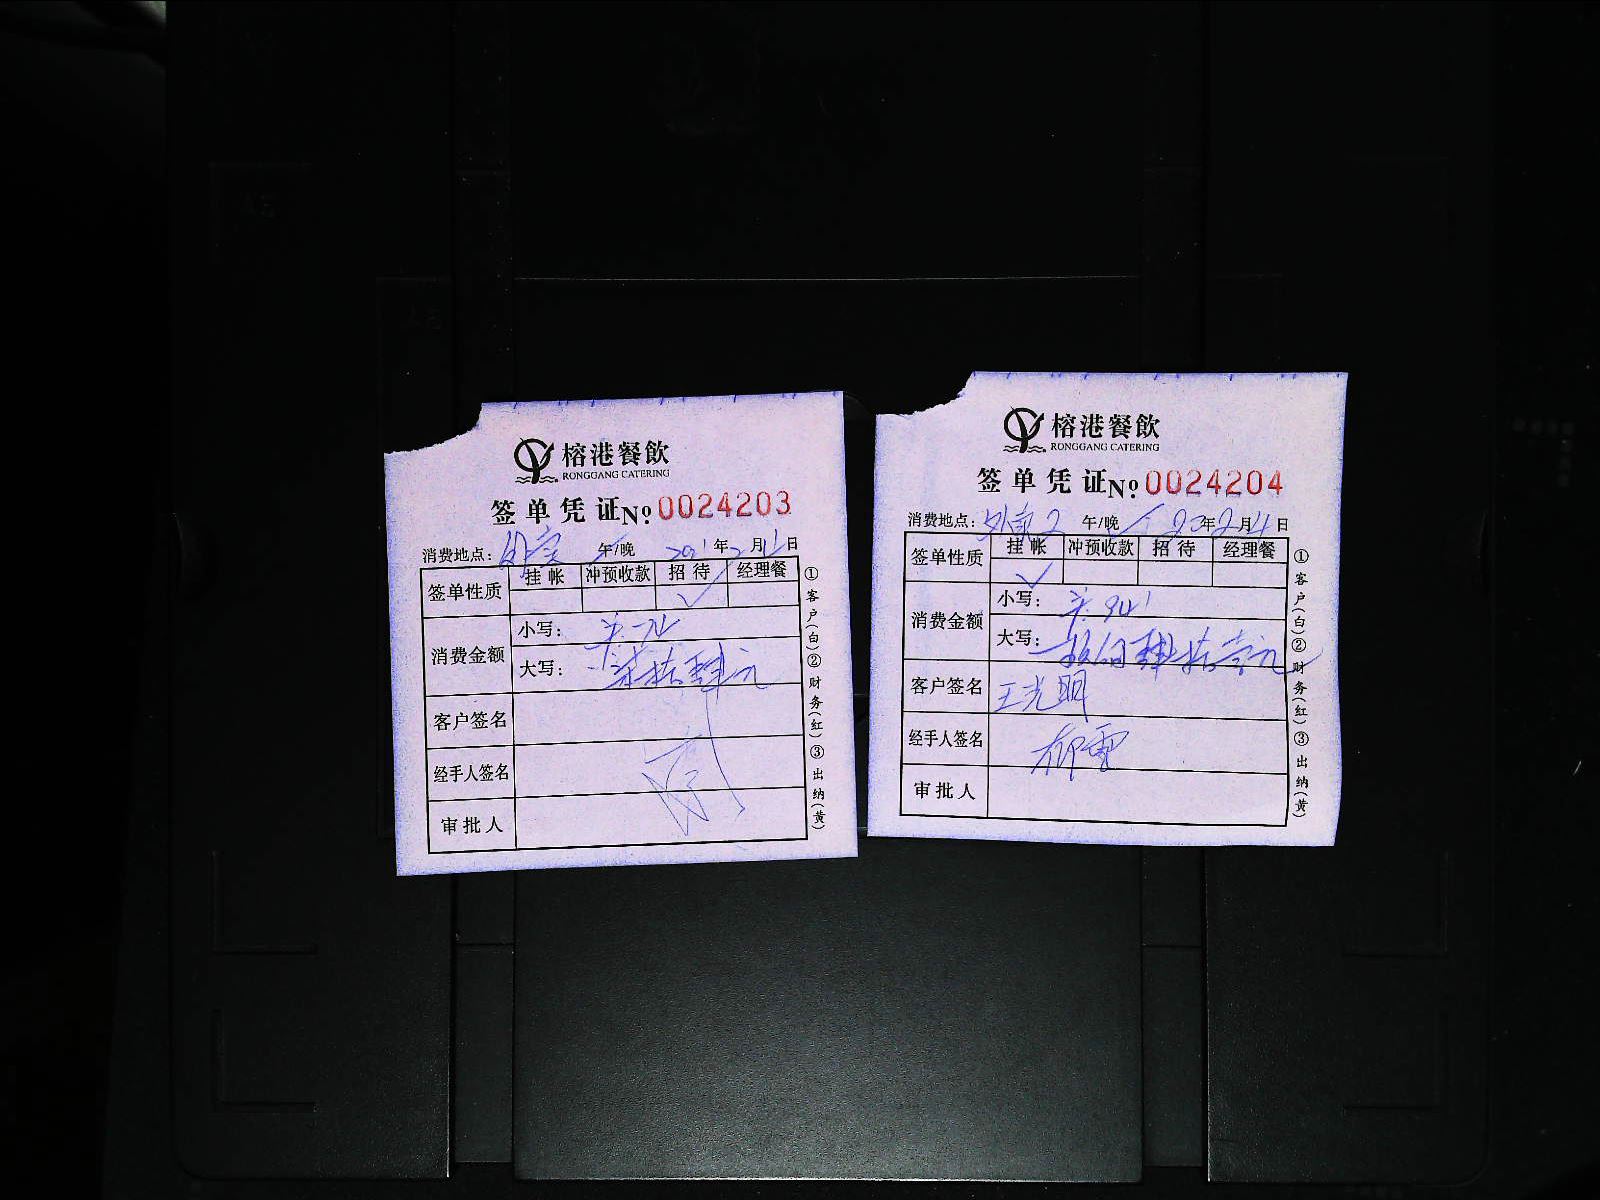 榕港餐飲
RONGGANG CATERING
签单凭证 No 0024203
消费地点: 午/晚 年 月 日
签单性质 挂帐 冲预收款 招待 经理餐
✓
消费金额
小写:
大写: 柒拾肆元
客户签名
经手人签名
审批人
①客户(白)②财务(红)③出纳(黄)
榕港餐飲
RONGGANG CATERING
签单凭证 No 0024204
消费地点: 外卖2 午/晚 年2月4日
签单性质 挂帐 冲预收款 招待 经理餐
✓
消费金额
小写:
大写: 肆拾壹元
客户签名 王光明
经手人签名 柳雪
审批人
①客户(白)②财务(红)③出纳(黄)